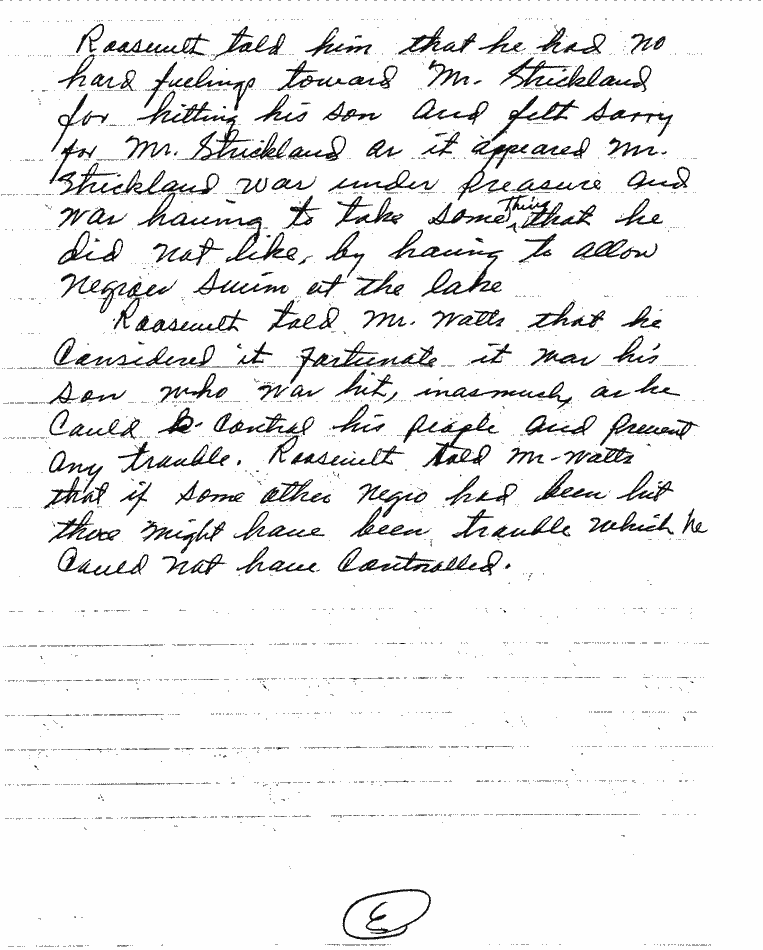 Roosevelt told him that he had no
hard feelings toward Mr. Strickland
for hitting his son and felt sorry
for Mr. Strickland as it appeared Mr.
Strickland was under preasure and
was having to take some thing that he
did not like, by having to allow
Negroes swim at the lake
Roosevelt told Mr. Watts that he
Considered it fortunate it was his
son who was hit, inasmuch, as he
Could control his people and prevent
any trouble. Roosevelt told Mr. Watts
that if some other negro had been hit
there might have been trouble which he
Could not have Controlled.